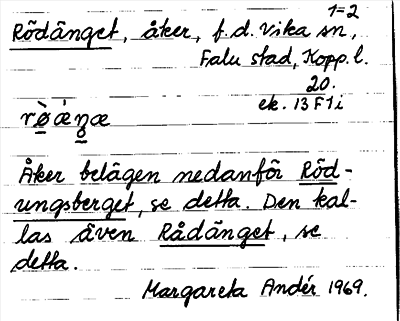 1=2
Rödänget, åker, f.d. Vika sn,
Falu stad, Kopp. l.
20.
ek. 13 F 1 i
rø̀æ̀ŋæ
Åker belägen nedanför Röd-
ungsberget, se detta. Den kal-
las även Rådänget, se
detta.
Margareta Andér 1969.